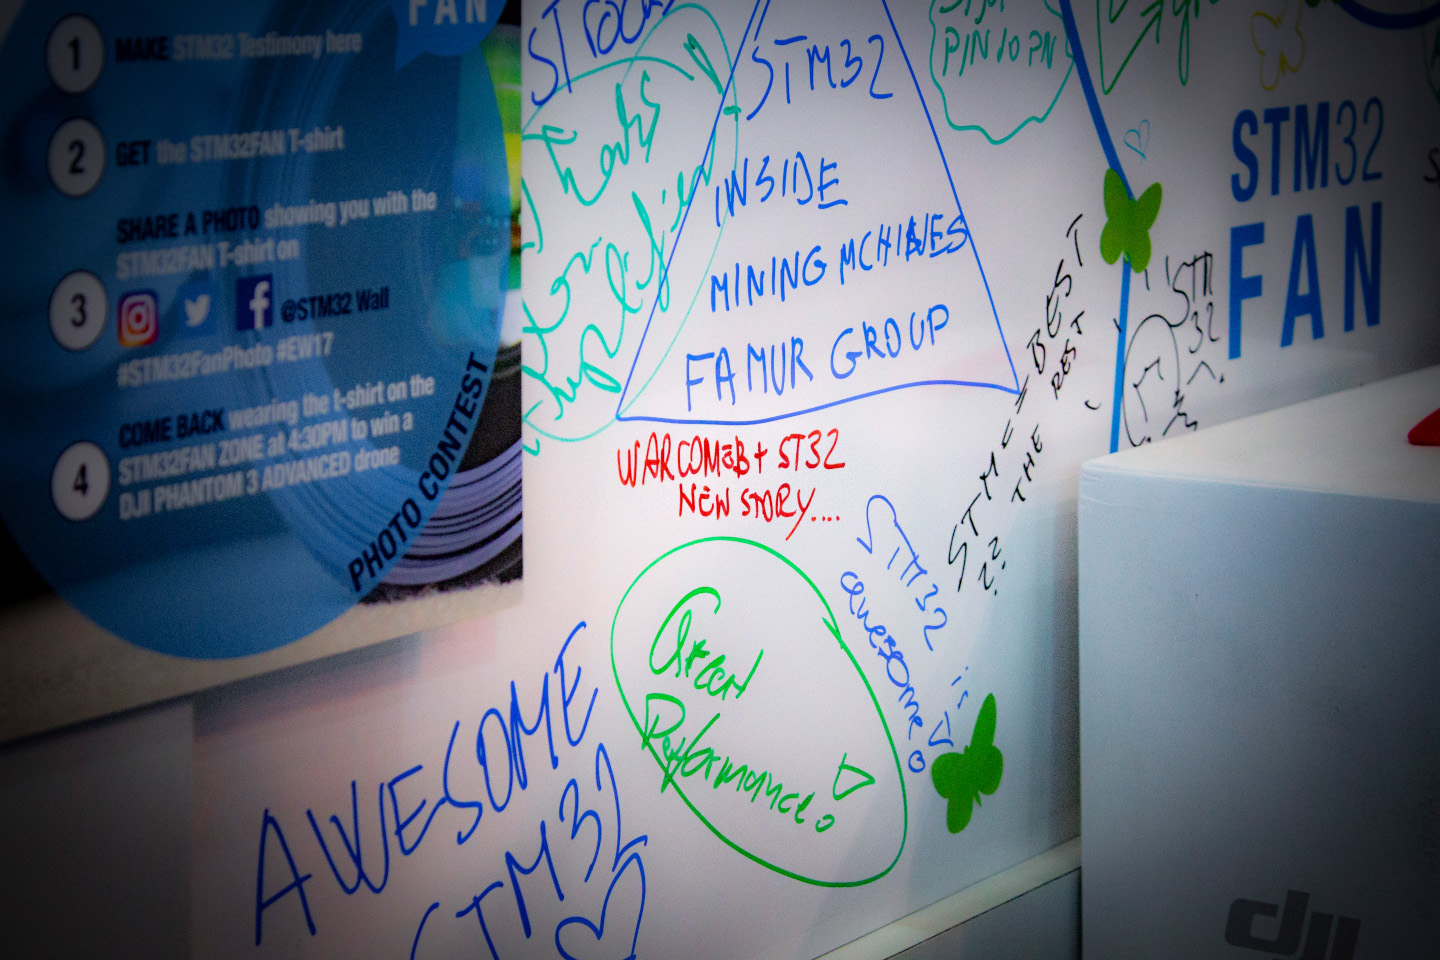 FAN
1
MAKE STM32 Testimony here
2
GET the STM32FAN T-shirt
3
SHARE A PHOTO showing you with the
STM32FAN T-shirt on
@STM32 Wall
#STM32FanPhoto #EW17
4
COME BACK wearing the t-shirt on the
STM32FAN ZONE at 4:30PM to win a
DJI PHANTOM 3 ADVANCED drone
PHOTO CONTEST
STM32
INSIDE
MINING MCHINES
FAMUR GROUP
PIN TO PIN
STM32
FAN
STM = BEST
THE REST
??
STM
32
WARCOMEB + ST32
NEW STORY....
STM32 is
awesome!
Great
Performance!
AWESOME
STM32
dji